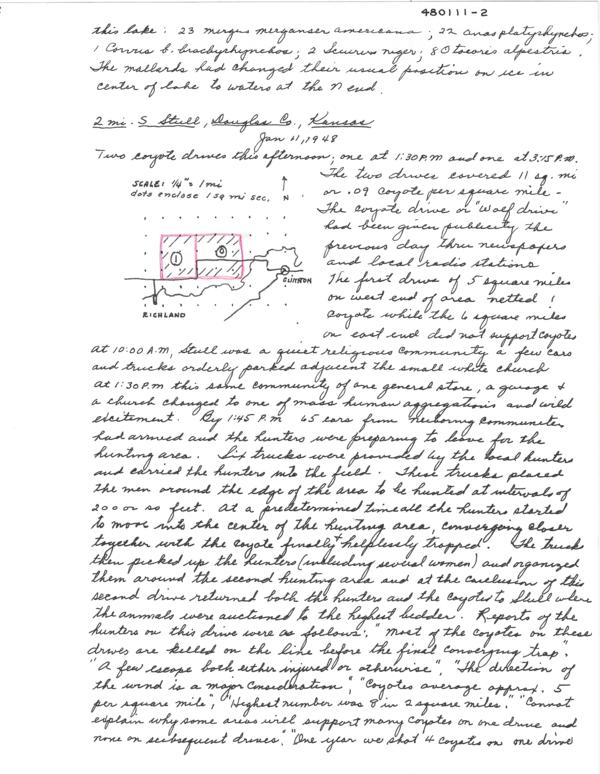 480111-2
this lake: 23 mergus merganser americana; 22 anas platyrhynchos;
1 Corvus b. brachyrhynchos; 2 Sciurus niger; 8 Otocoris alpestris.
The mallards had changed their usual position on ice in
center of lake to waters at the N end.
2 mi. S Stull, Douglas Co., Kansas
Jan 11, 1948
Two coyote drives this afternoon; one at 1:30 P.M and one at 3:15 P.M.
The two drives covered 11 sq. mi
or .09 coyote per square mile -
The coyote drive or "wolf drive"
had been given publicity the
previous day thru newspapers
and local radio stations
The first drive of 5 square miles
on west end of area netted 1
coyote while the 6 square miles
on east end did not support coyotes
SCALE: 1/4" = 1 mi
dots enclose 1 sq mi sec.
N
1
0
CLINTON
RICHLAND
At 10:00 A.M, Stull was a quiet religious community a few cars
and trucks orderly parked adjacent the small white church
at 1:30 P.M this same community of one general store, a garage &
a church changed to one of mass human aggregations and wild
excitement. By 1:45 P.M 65 cars from neiboring communities
had arrived and the hunters were preparing to leave for the
hunting area. Six trucks were provided by the local hunters
and carried the hunters into the field. These trucks placed
the men around the edge of the area to be hunted at intervals of
200 or so feet. At a predetermined time all the hunters started
to move into the center of the hunting area, converging closer
together with the coyote finally & helplessly trapped. The trucks
then picked up the hunters (including several women) and organized
them around the second hunting area and at the conclusion of this
second drive returned both the hunters and the coyotes to Stull where
the animals were auctioned to the highest bidder. Reports of the
hunters on this drive were as follows: "Most of the coyotes on these
drives are killed on the line before the final converging trap."
"A few escape both either injured or otherwise", "The direction of
the wind is a major consideration", "Coyotes average approx. 5
per square mile", "Highest number was 8 in 2 square miles." "Cannot
explain why some areas will support many coyotes on one drive and
none on subsequent drives". "One year we shot 4 coyotes on one drive